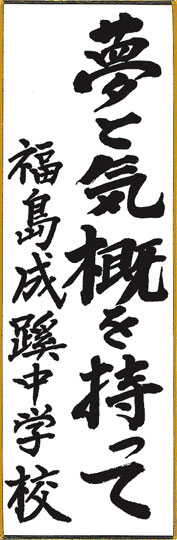 夢と気概を持って
福島成蹊中学校